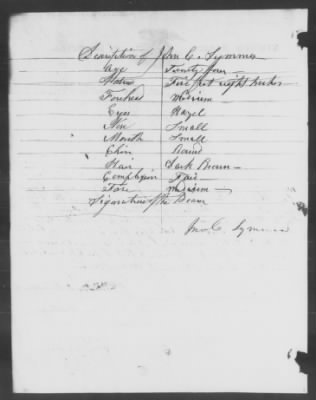 Description of John C. Symmes
Age Twenty four
Stature Five feet eight inches
Forehead Medium
Eyes Hazel
Nose Small
Mouth Small
Chin Round
Hair Dark Brown
Complexion Fair
Face Medium
Signature of the Bearer
Jno. C. Symmes